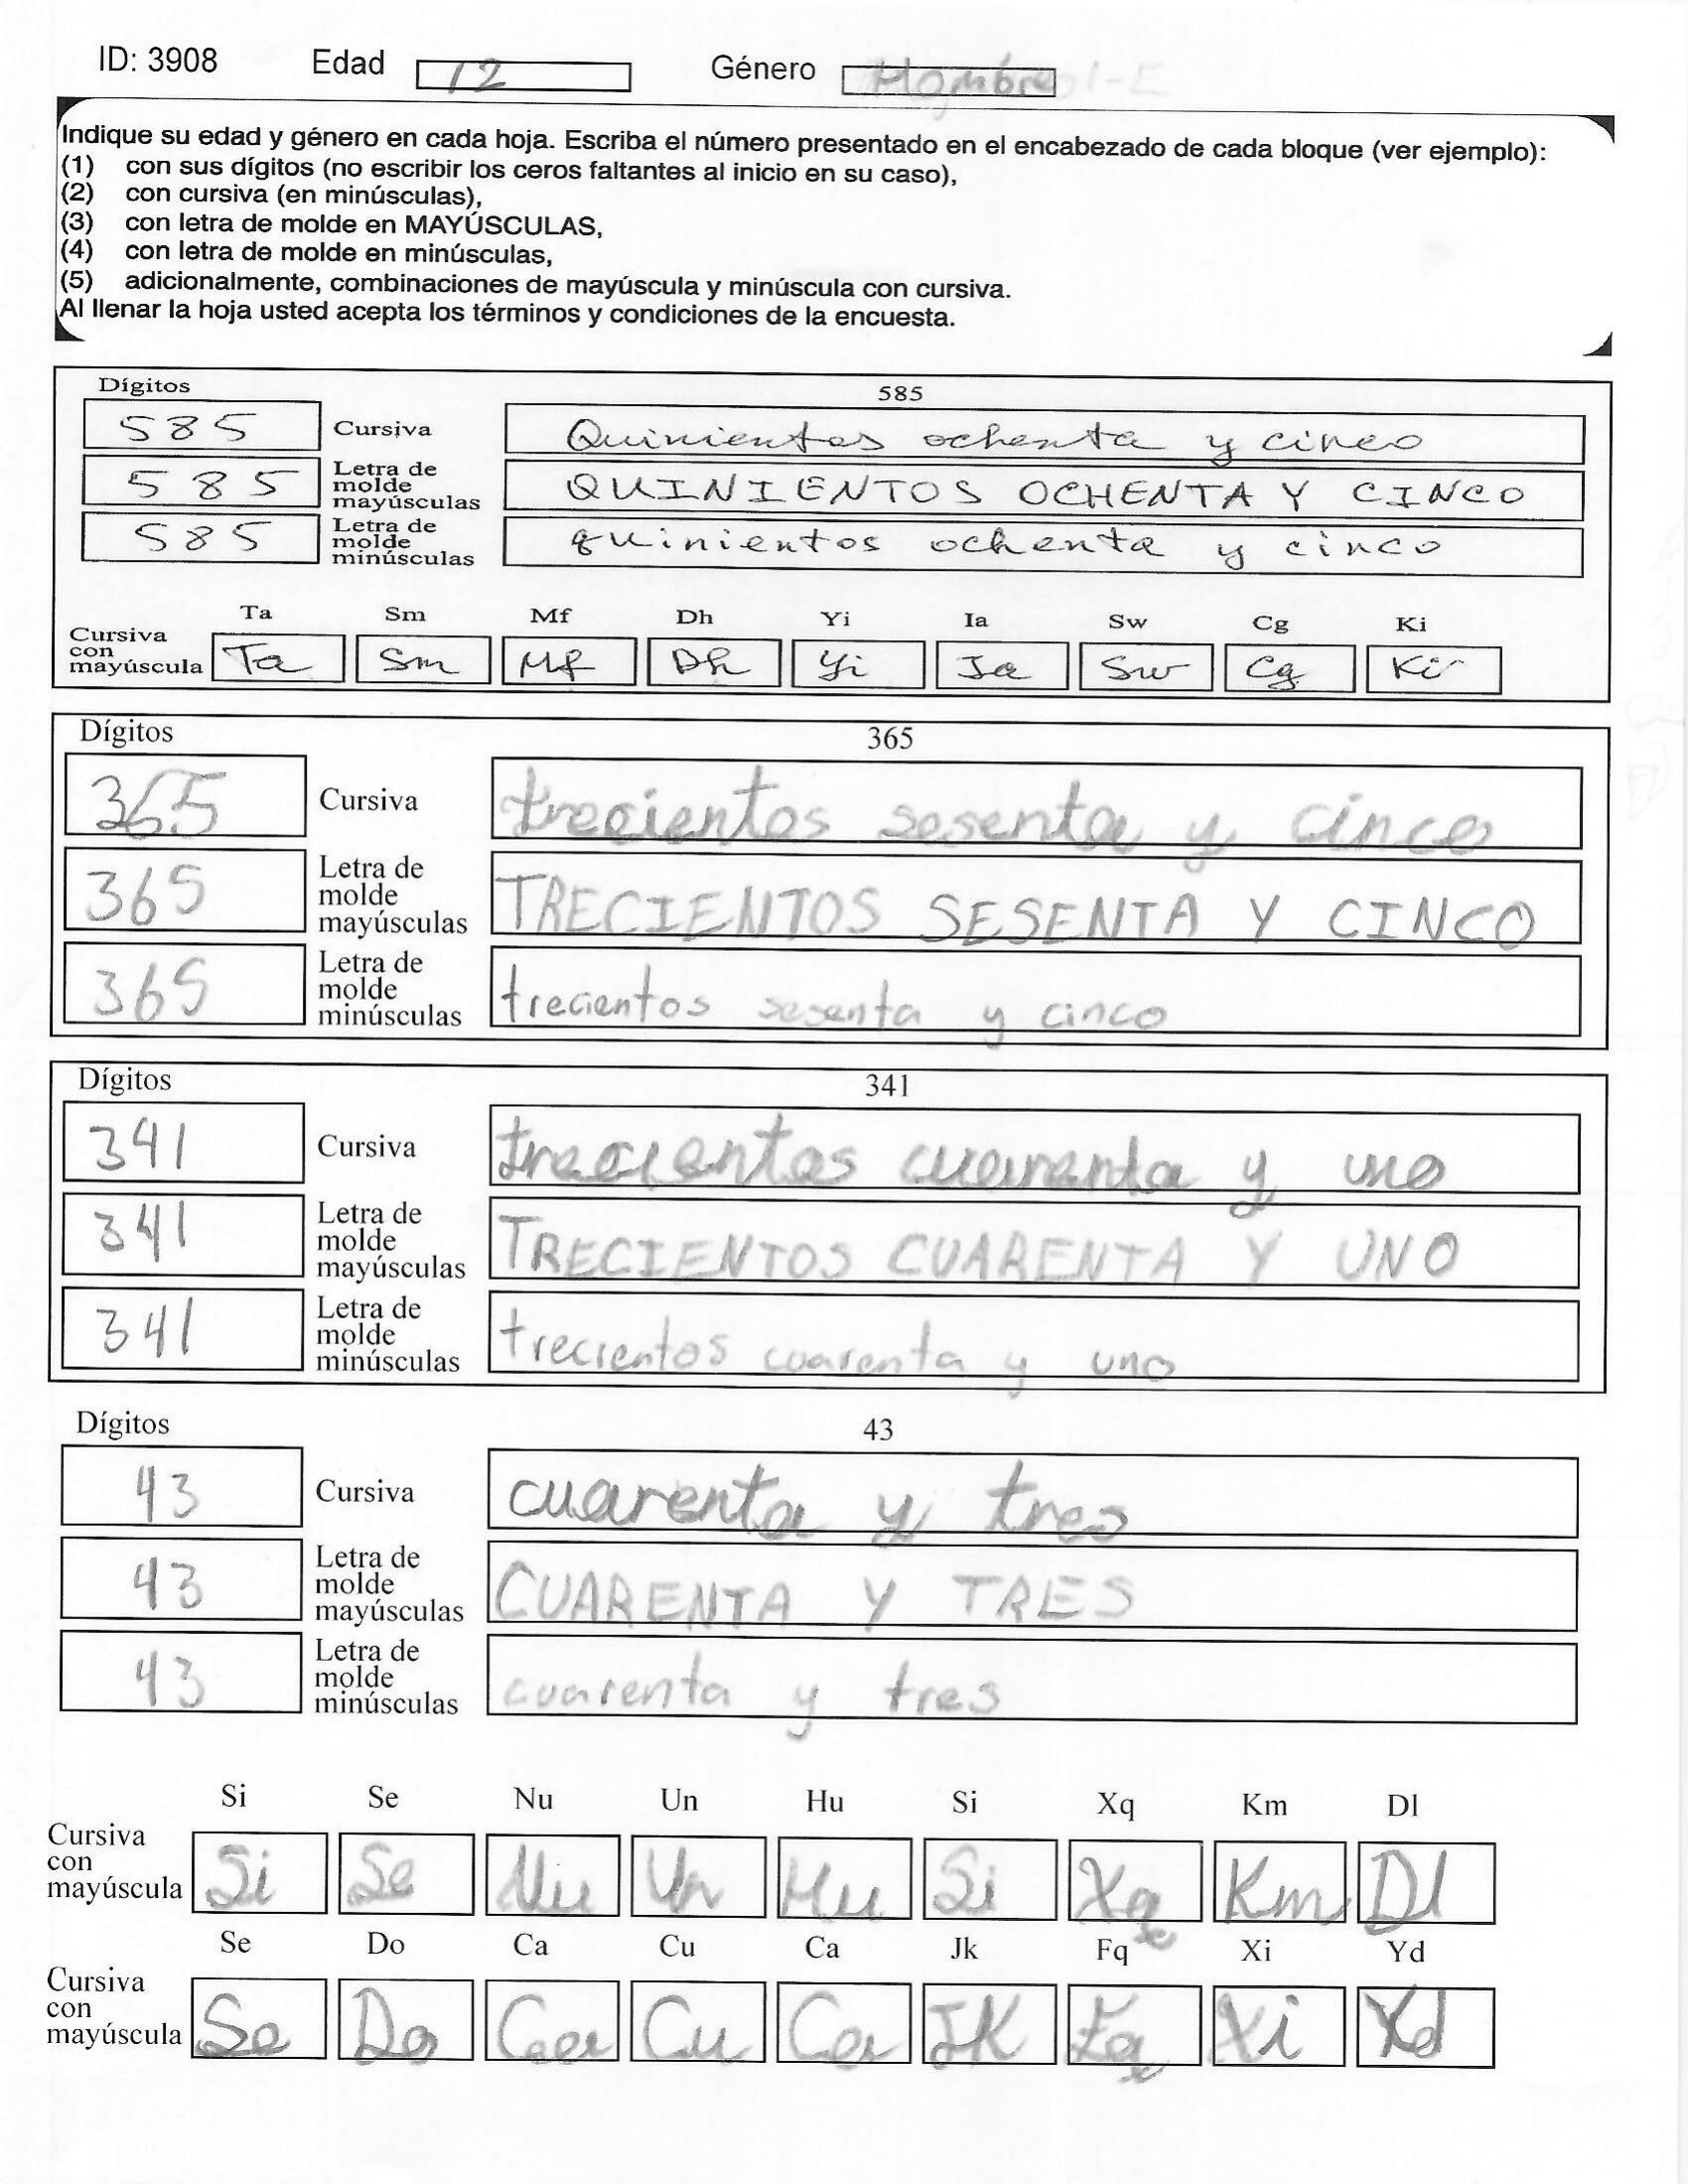 ID: 3908 Edad 12 Género Hombre 1-E
Indique su edad y género en cada hoja. Escriba el número presentado en el encabezado de cada bloque (ver ejemplo):
(1) con sus dígitos (no escribir los ceros faltantes al inicio en su caso),
(2) con cursiva (en minúsculas),
(3) con letra de molde en MAYÚSCULAS,
(4) con letra de molde en minúsculas,
(5) adicionalmente, combinaciones de mayúscula y minúscula con cursiva.
Al llenar la hoja usted acepta los términos y condiciones de la encuesta.
Dígitos 585
585 Cursiva Quinientos ochenta y cinco
585 Letra de molde mayúsculas QUINIENTOS OCHENTA Y CINCO
585 Letra de molde minúsculas quinientos ochenta y cinco
Ta Sm Mf Dh Yi Ia Sw Cg Ki
Cursiva con mayúscula Ta Sm Mf Dh Yi Ia Sw Cg Ki
Dígitos 365
365 Cursiva trecientos sesenta y cinco
365 Letra de molde mayúsculas TRECIENTOS SESENTA Y CINCO
365 Letra de molde minúsculas trecientos sesenta y cinco
Dígitos 341
341 Cursiva trecientos cuarenta y uno
341 Letra de molde mayúsculas TRECIENTOS CUARENTA Y UNO
341 Letra de molde minúsculas trecientos cuarenta y uno
Dígitos 43
43 Cursiva cuarenta y tres
43 Letra de molde mayúsculas CUARENTA Y TRES
43 Letra de molde minúsculas cuarenta y tres
Si Se Nu Un Hu Si Xq Km Dl
Cursiva con mayúscula Si Se Nu Un Hu Si Xq Km Dl
Se Do Ca Cu Ca Jk Fq Xi Yd
Cursiva con mayúscula Se Do Ca Cu Ca JK Fq Xi Yd